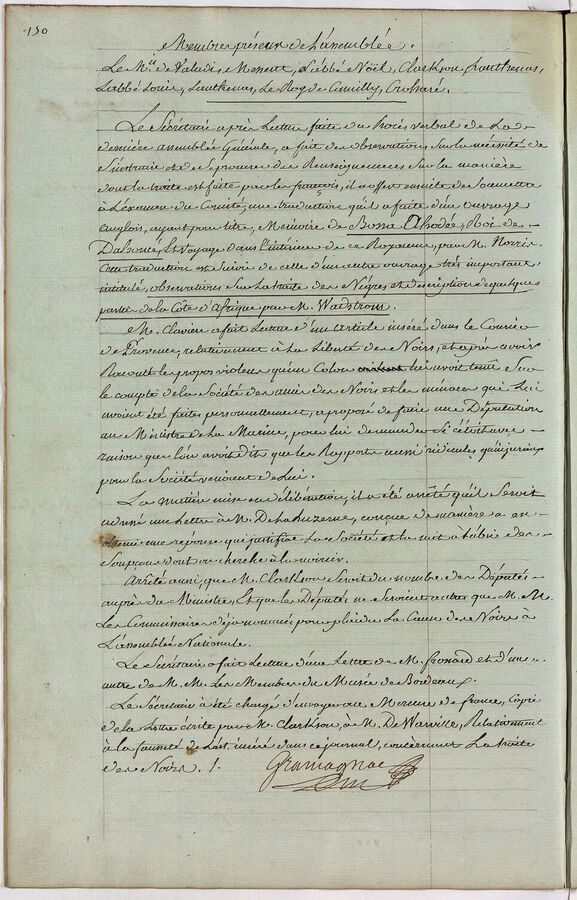 150
Membres présens de L'assemblée.
Le Mis. de Valady, Mesent, L'abbé Noël, Clarkson, Lanthenas,
L'abbé Louis, Lanthenas, Le Roy de Camilly, Croharé.
Le Secrétaire après Lecture faite du Procès verbal de La
dernière assemblée Générale, a fait des observations sur la nécessité de
s'instruire et de se procurer des Renseignemens sur la manière
dont la traite est faite par les françois, il a offert ensuite de soumettre
à L'examen du Comité, une traduction qu'il a faite d'un ouvrage
anglois, ayant pour titre, Mémoire de Bossa Ahadée, Roi de
Dahomé, Et voyage dans l'intérieur de ce Royaume, par M. Norris.
Cette traduction est suivie de celle d'un autre ouvrage très important,
intitulé, observations sur La traite des Nègres et description de quelques
parties de la Côte d'Afrique par M. Wadstrom.
M. Clavière a fait Lecture d'un article inséré dans le Courier
de Provence, relativement à La Liberté des Noirs, et après avoir
Raconté les propos violens qu'un Colon lui avoit tenu sur
le compte de la Société des amis des Noirs et les menaces qui Lui
avoient été faites personnellement, a proposé de faire une Députation
au Ministre de La Marine, pour lui demander si c'étoit avec
raison que l'on avoit dit que les Rapports aussi ridicules qu'injurieux
pour la Société venoient de Lui.
La matière mise en délibération, il a été arrêté qu'il seroit
adressé une Lettre à M. De La Luzerne, conçue de manière à en
obtenir une réponse qui justifiat La Société et la mit à l'abri des
Soupçons dont on cherche à la noircir.
Arrêté aussi, que M. Clarkson seroit du nombre des Députés
auprès du Ministre, Et que les Députés ne seroient autres que M.M.
Les Commissaires déja nommés pour plaider La Cause des Noirs à
L'assemblée Nationale.
Le Secrétaire a fait Lecture d'une Lettre de M. fronard et d'une
autre de M.M. Les Membres du Musée de Bordeaux.
Le Secrétaire a été chargé d'envoyer au Mercure de france, Copie
de la Lettre écrite par M. Clarkson, à M. De Warville, Relativement
à la fausseté de L'est. inséré dans ce journal, concernant La traite
des Noirs. /.
Gramagnac